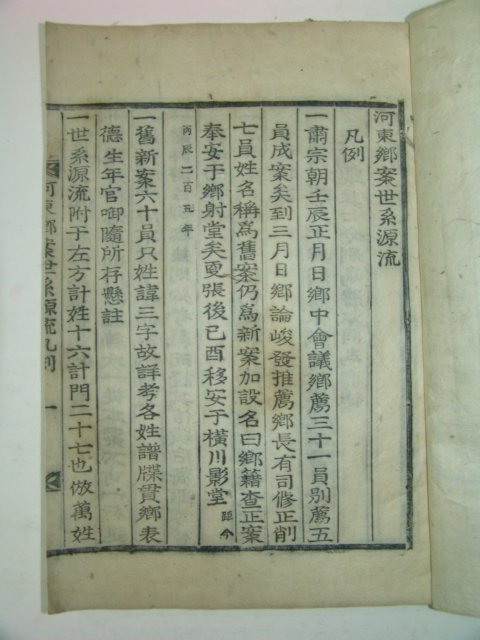 河東鄉案世系源流
凡例
一肅宗朝壬辰正月日鄉中會議鄉薦三十一員別薦五
員成案矣到三月日鄉論峻發推薦鄉長有司修正削
七員姓名稱為舊案仍為新案加設名曰鄉籍查正案
奉安于鄉射堂矣更張後己酉移安于橫川影堂距今
丙辰二百五年
一舊新案六十員只姓諱三字故詳考各姓譜牒貫鄉表
德生年官啣隨所存懸註
一世系源流附于左方計姓十六計門二十七也倣萬姓
河東鄉案世系源流凡例 一